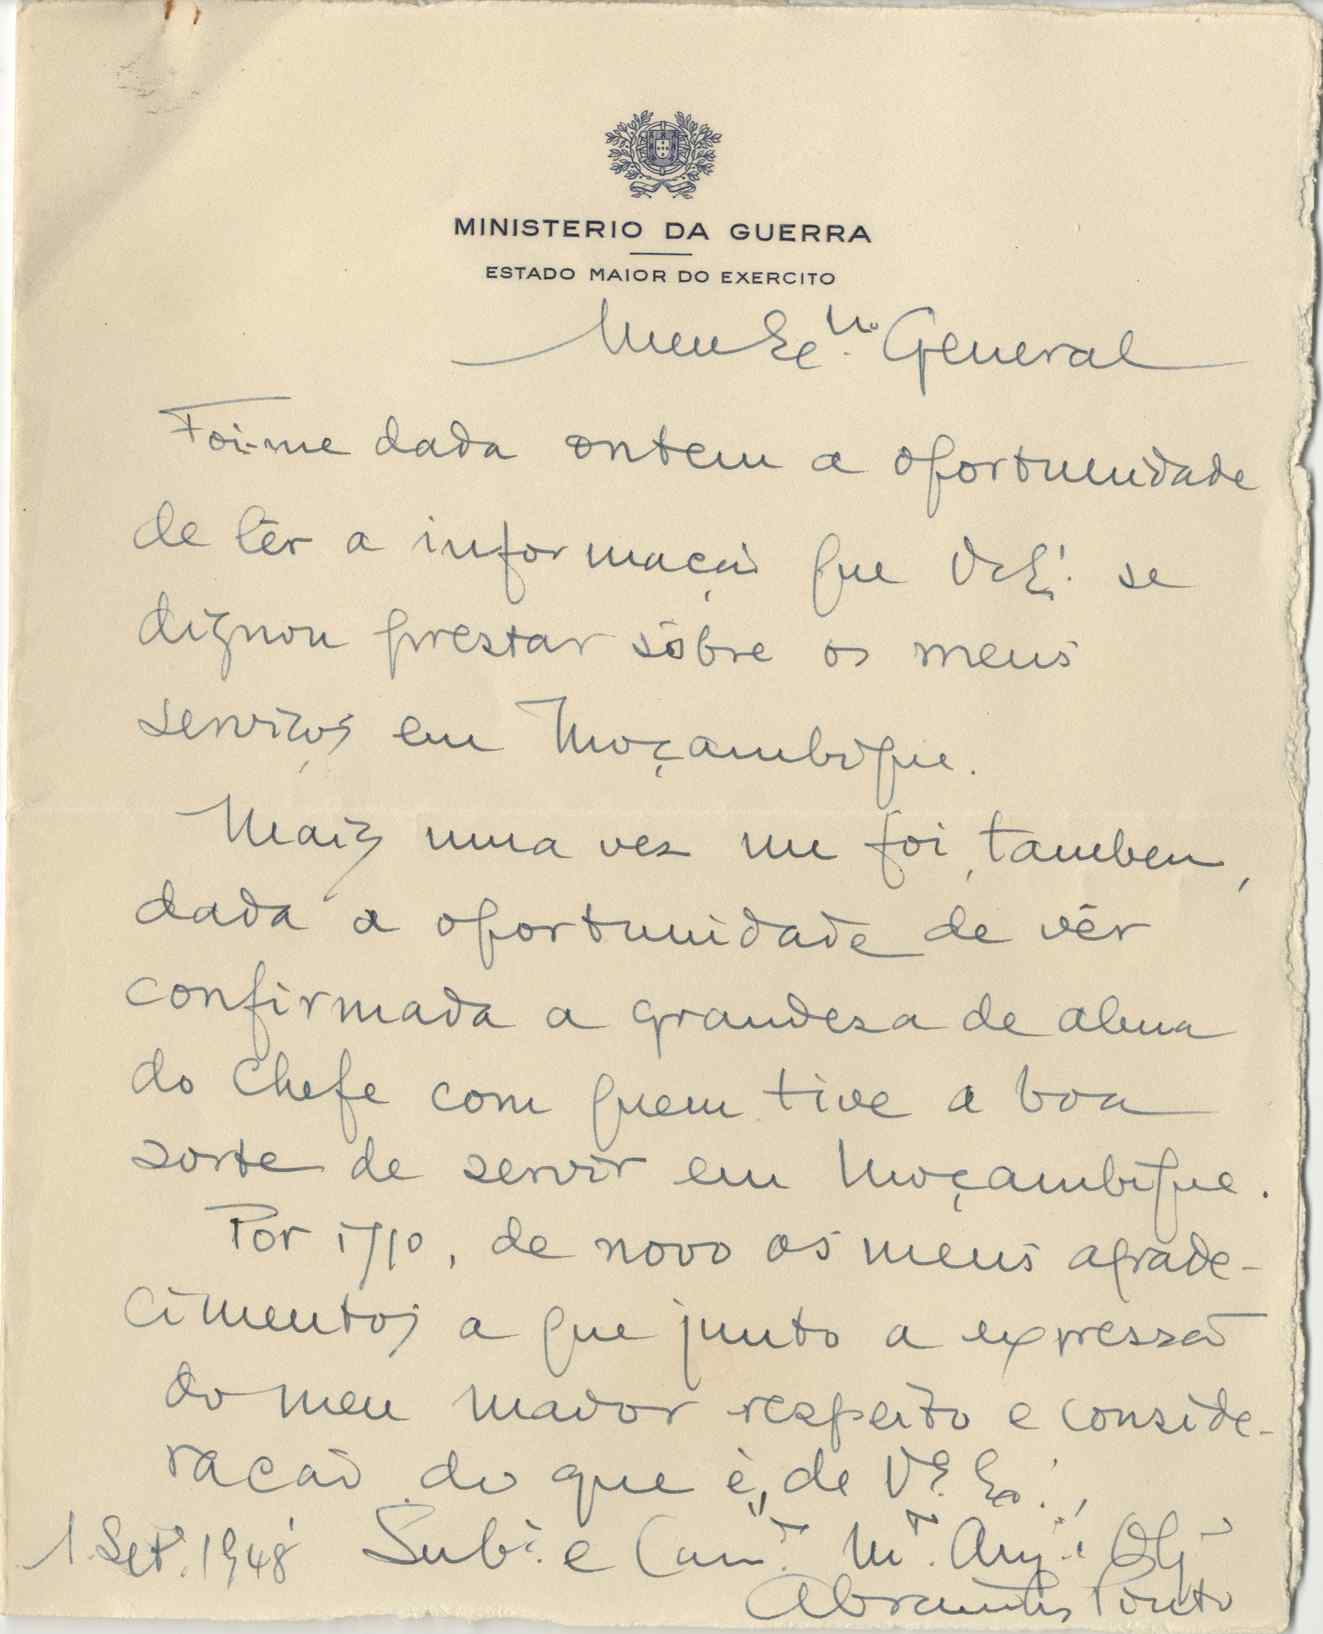 MINISTERIO DA GUERRA
ESTADO MAIOR DO EXERCITO
Meu Exmo. General
Foi-me dada ontem a oportunidade
de lêr a informação que V. Ex. se
dignou prestar sôbre os meus
serviços em Moçambique.
Mais uma vez me foi, tambem,
dada a oportunidade de vêr
confirmada a grandeza de alma
do Chefe com quem tive a boa
sorte de servir em Moçambique.
Por isso, de novo os meus agrade-
cimentos a que junto a expressão
do meu maior respeito e conside-
ração do que é, de V. Ex.,
1. Set. 1948 Sub. e Cam. Mto. Obg
Abrantes Pinto